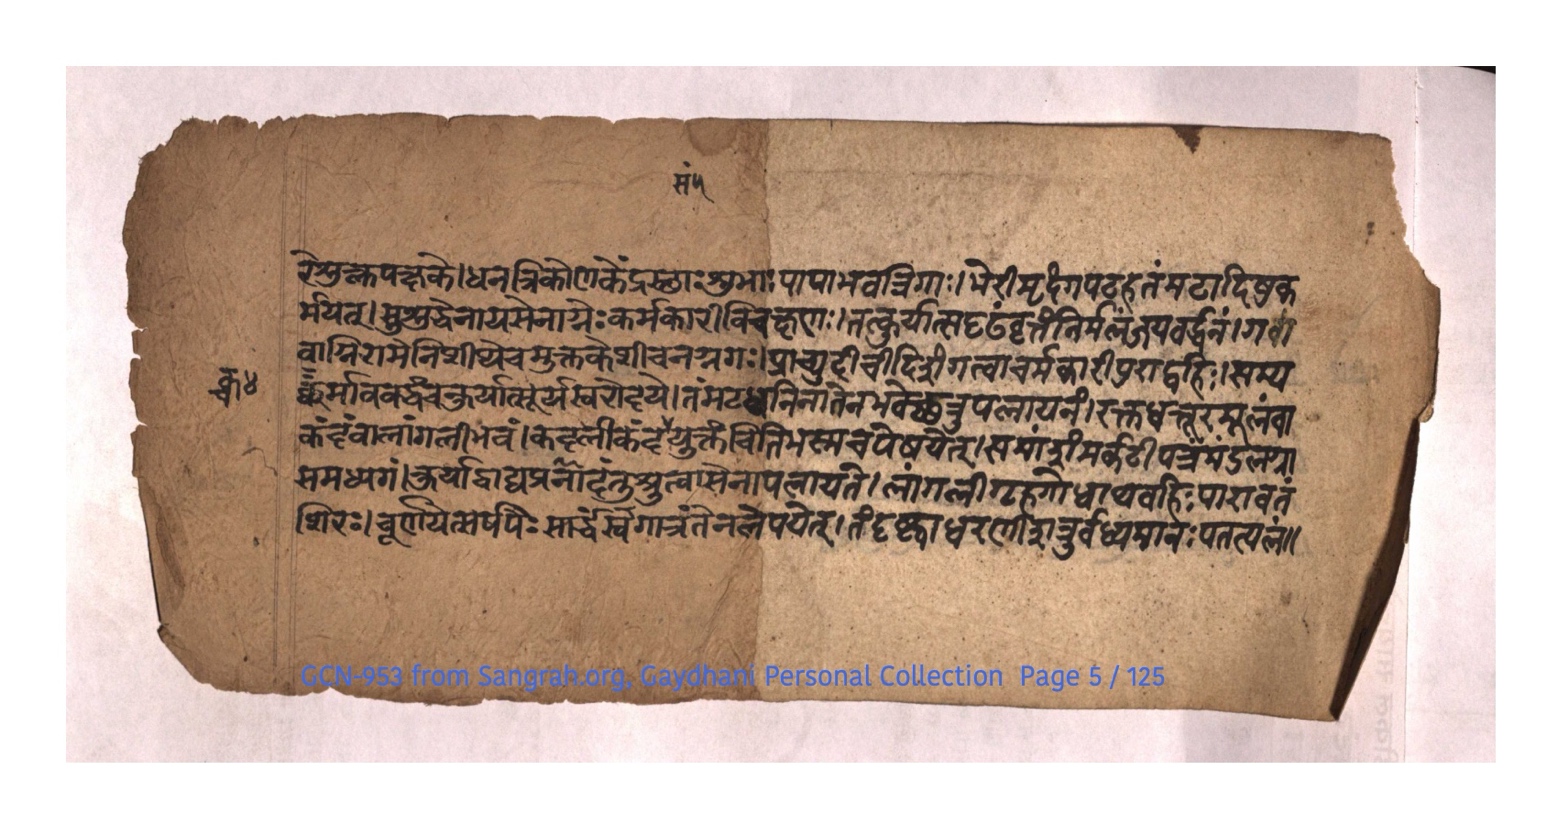 सं५
रेशुक्लपक्षके।धनत्रिकोणकेंद्रस्छाःशुभाःपापाभवत्रिगाः।भेरीमृदंगपटहतंमटादिषुक
र्मयेत्।सुशुद्धेनायसेनाग्नेःकर्मकारीविचक्षणः।तत्कुर्यात्सदृढंवृत्तंनिर्मलंजयवर्द्धनं।गवां
वाग्निरामेनिशीथेचमुक्तकेशीचनग्नगः।प्राच्युदीचीदिशीगत्वाचर्मकारीपुराद्बहिः।सम्य
क्चर्मावबद्धंचकुर्यात्सूर्यस्वरोदये।तंमटध्वनिनातेनभवेच्छत्रुपलायनं।रक्तधत्तूरमूलंवा
कंदंवालांगलीभवं।कदलीकंदयुक्तंचितिभस्मचपेषयेत्।समांशंमर्कटीपत्रंमंडल
समध्यगं।कुर्याद्वाद्यप्रनादंतुश्रुत्वासेनापलायते।लांगलीगृहगोधाथवहिःपारावतं
शिरः।चूर्णयेत्सर्षपैःसार्द्धंस्वगात्रंतेनलेपयेत्।तंदृष्ट्वाधरणौशत्रुर्वध्यमानःपतत्यलं॥
क्र४
GCN-953 from Sangrah.org, Gaydhani Personal Collection Page 5 / 125